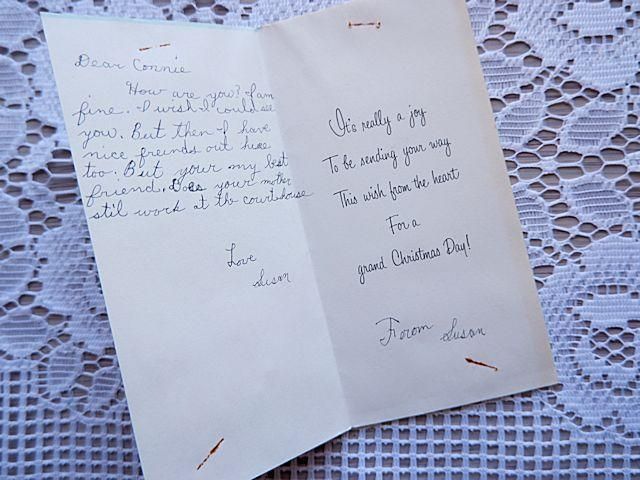 Dear Connie
How are you? I am
fine. I wish I could see
you. But then I have
nice freinds out here
too. But your my best
friend. Does your mother
stil work at the courthouse
Love
Susan
It's really a joy
To be sending your way
This wish from the heart
For a
grand Christmas Day!
From Susan